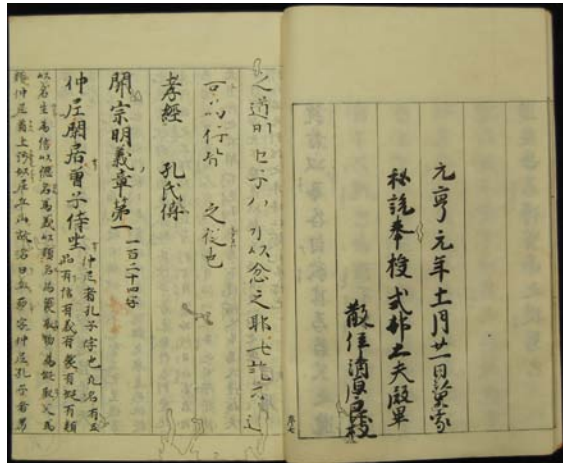 元亨元年十一月廿一日以家
秘説奉授 式部大夫殿畢
散位清原
序七
孝經 孔氏傳
開宗明義章第一 一百二十四字
仲尼閒居曽子侍坐 仲尼者孔子字也凡名有五
品有信有義有象有假有類
以名生為信以德名為義以類名為象取物為假取父為
類仲尼首上汙似尼丘山故名曰丘而字仲尼孔子者男